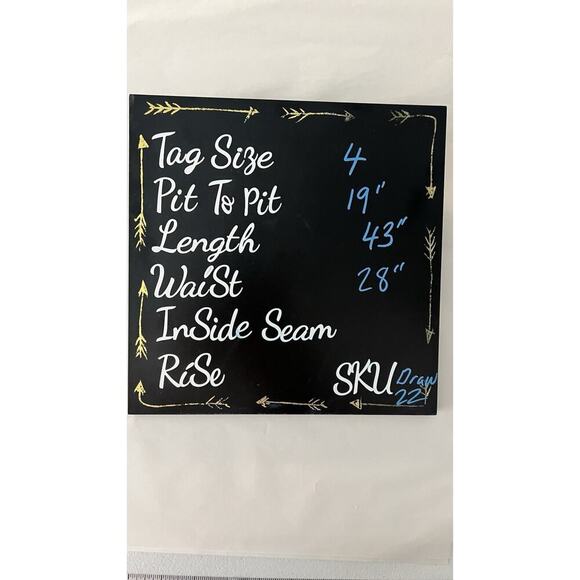 Tag Size 4
Pit To Pit 19"
Length 43"
WaiSt 28"
InSide Seam
RiSe
SKU Draw
22